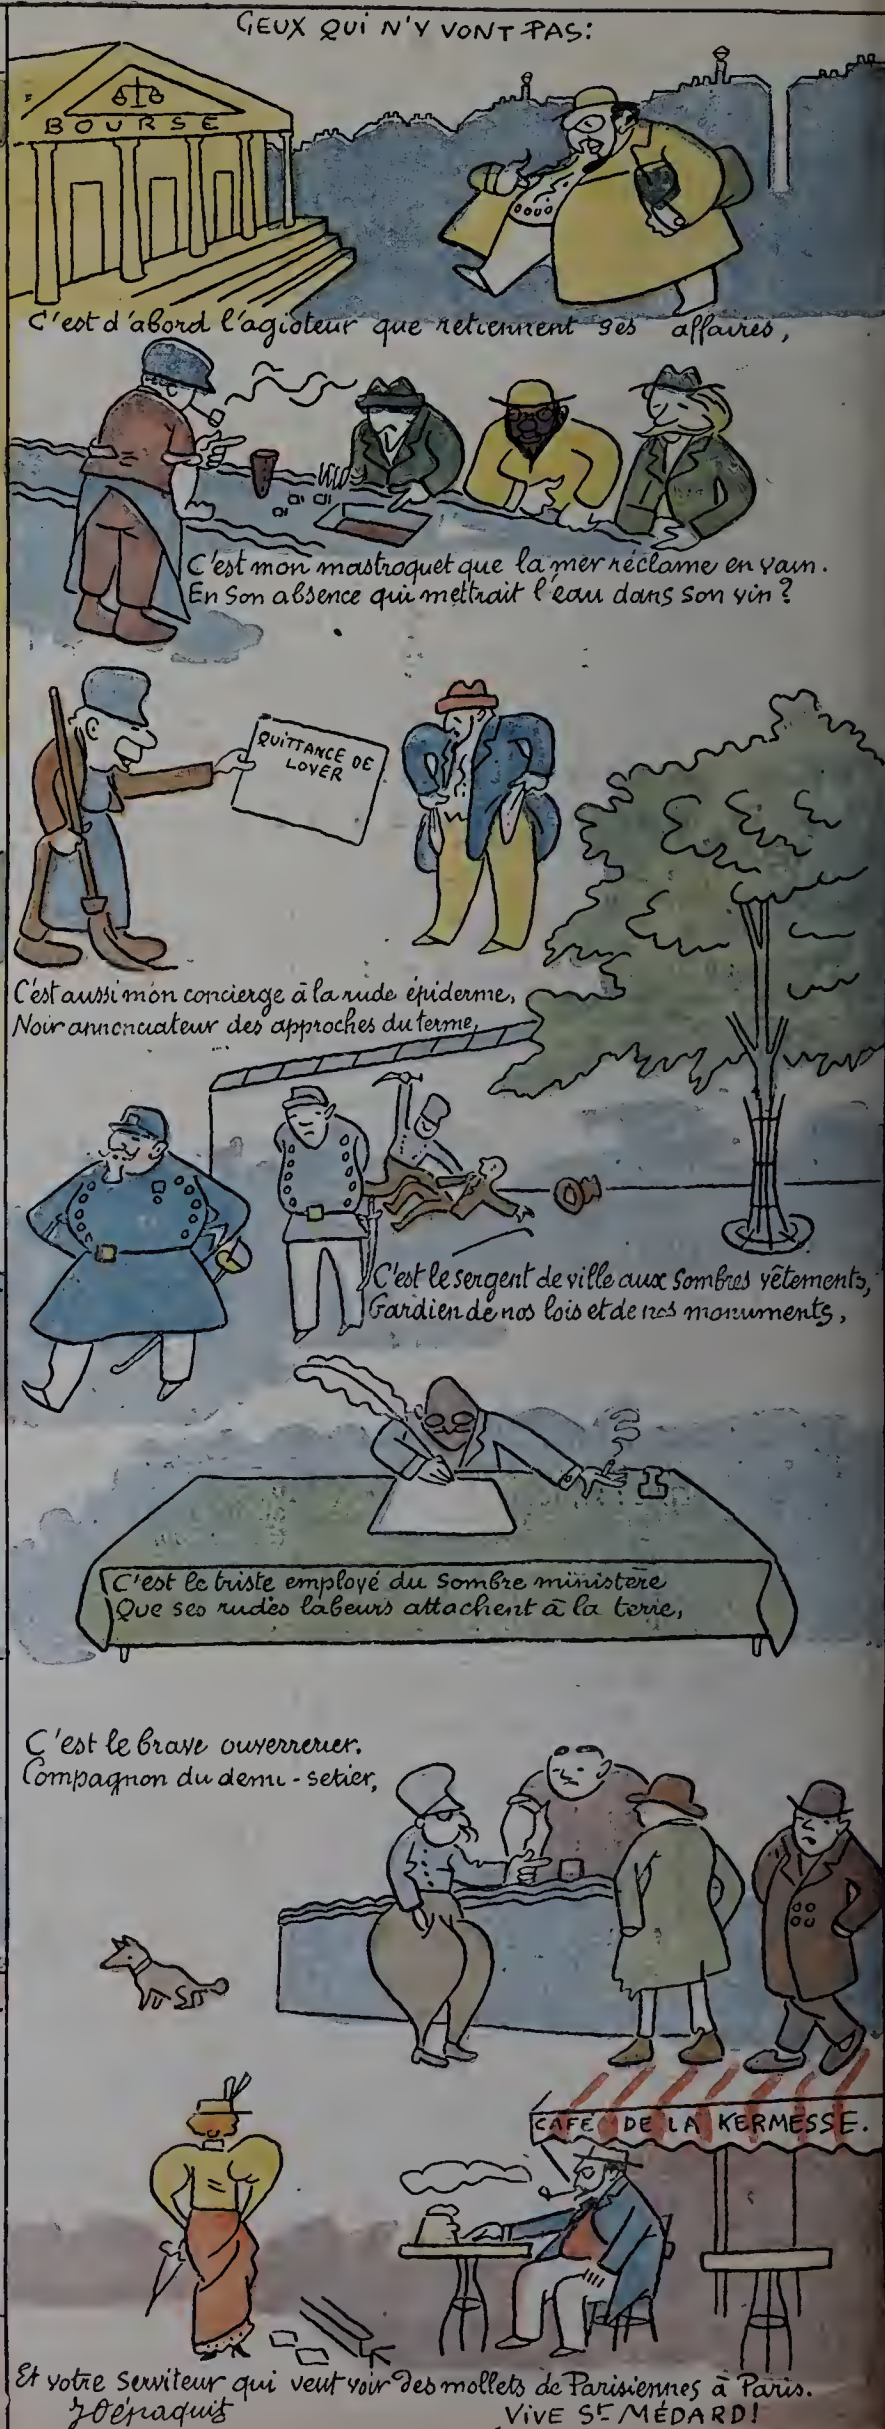 CEUX QUI N'Y VONT PAS:
BOURSE
C'est d'abord l'agioteur que retiennent ses affaires,
C'est mon mastroquet que la mer réclame en vain.
En son absence qui mettrait l'eau dans son vin?
QUITTANCE DE
LOYER
C'est aussi mon concierge à la rude épiderme,
Noir annonciateur des approches du terme,
C'est le sergent de ville aux sombres vêtements,
Gardien de nos lois et de nos monuments,
C'est le triste employé du sombre ministère
Que ses rudes labeurs attachent à la terre,
C'est le brave ouverrerier.
Compagnon du demi-setier,
CAFÉ DE LA KERMESSE.
Et votre serviteur qui veut voir des mollets de Parisiennes à Paris.
J Dépaquit
VIVE ST MÉDARD!